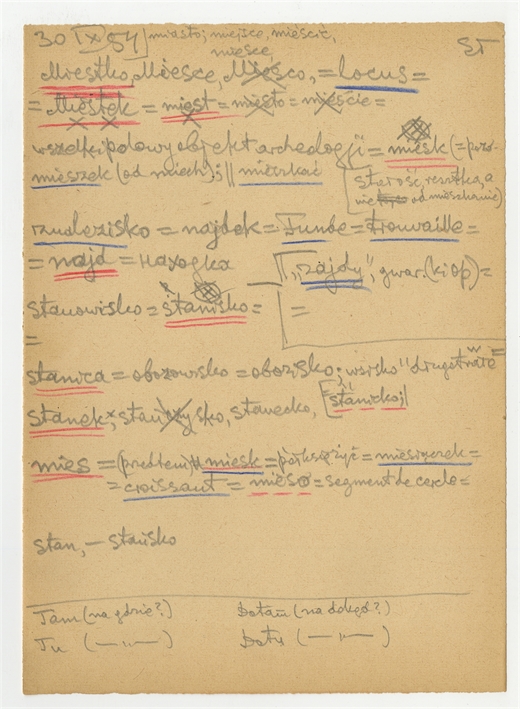 30 IX 54] miasto; miejsce, mieście,
miesce
ST
Miestko, Miesce, Miesco, = locus =
= Miestek = miest = miesto = mieście =
wszelki polowy objekt archeologji = miesk (= poro-
mieszek (od miech); || mieszkać
starość, resztka, a
nie od mieszkanie)
znalezisko = najdek = Funde = trouvaille =
= najd = находка
"zajdy", gwar. (kiop) =
stanowisko = stanisko =
=
=
stanica = obozowisko = obozisko;
stanek; stanisko, stanecko,
[stanickoj]
mies = miesk = półksiężyc = miesięcrek =
= croissant = mieso = segment de cercle =
stan, — stańsko
Tam (na gdzie?)
Dotąd (na dokąd?)
Tu (—"—)
Doty (—"—)